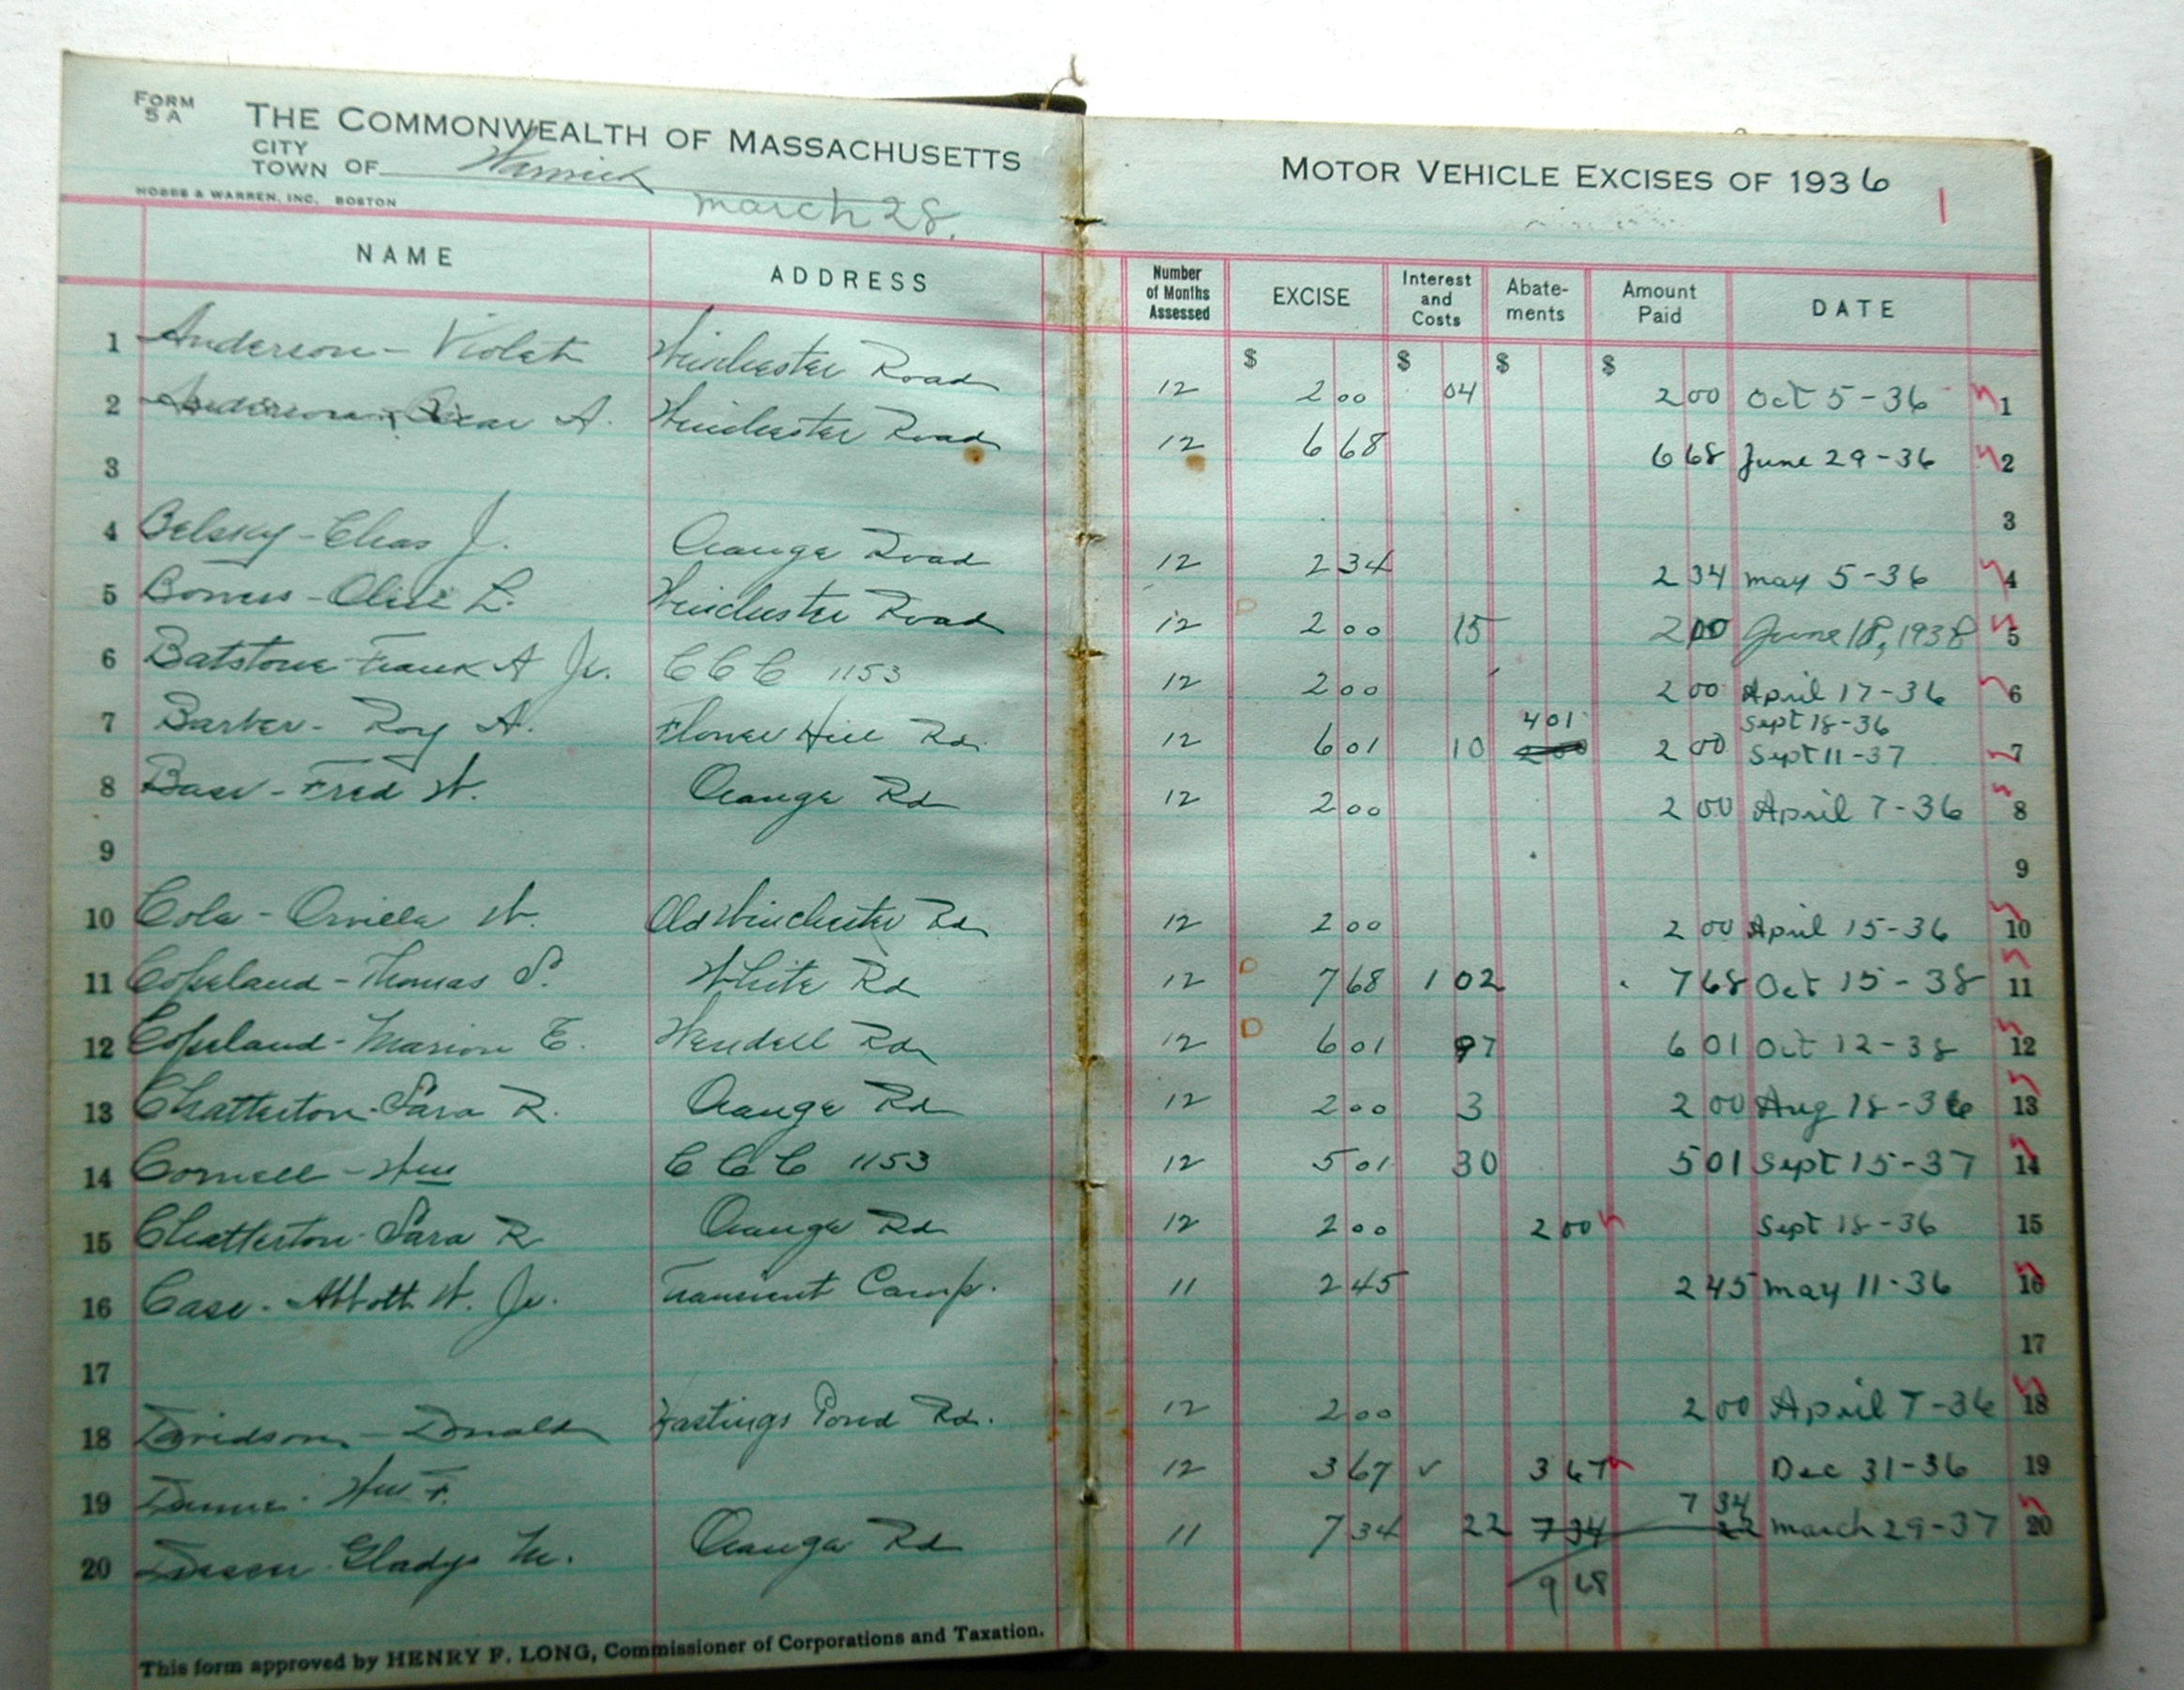 FORM 5 A
THE COMMONWEALTH OF MASSACHUSETTS
CITY
TOWN OF Warwick
HOBBS & WARREN, INC. BOSTON
march 28.
MOTOR VEHICLE EXCISES OF 1936
1
NAME ADDRESS Number of Months Assessed EXCISE Interest and Costs Abate-ments Amount Paid DATE
$ $ $ $
1 Anderson - Violet Winchester Road 12 2 00 04 2 00 Oct 5-36 1
2 Anderson, Oscar A. Winchester Road 12 6 68 6 68 June 29-36 2
3 3
4 Belsky - Chas J. Orange Road 12 2 34 2 34 may 5-36 4
5 Olive L. Winchester Road 12 2 00 15 2 00 June 18, 1938 5
6 Batstone Frank A Jr. C C C 1153 12 2 00 2 00 April 17-36 6
401 Sept 18-36
7 Barber - Roy A. Flower Hill Rd. 12 6 01 10 2 00 2 00 Sept 11-37 7
8 Bass - Fred W. Orange Rd 12 2 00 2 00 April 7-36 8
9 9
10 Cole - Orville W. Old Winchester Rd 12 2 00 2 00 April 15-36 10
11 Copeland - Thomas S. White Rd 12 7 68 1 02 7 68 Oct 15-38 11
12 Copeland - Marion E. Wendell Rd 12 6 01 97 6 01 Oct 12-38 12
13 Chatterton - Sara R. Orange Rd 12 2 00 3 2 00 Aug 18-36 13
14 Cornell - Wm C C C 1153 12 5 01 30 5 01 Sept 15-37 14
15 Chatterton - Sara R Orange Rd 12 2 00 2 00 Sept 18-36 15
16 Case - Abbott W. Jr. Transient Camp. 11 2 45 2 45 may 11-36 16
17 17
18 Davidson - Donald Hastings Pond Rd. 12 2 00 2 00 April 7-36 18
19 Wm F. 12 3 67 3 67 Dec 31-36 19
7 34
20 Gladys M. Orange Rd 11 7 34 22 7 34 22 march 29-37 20
9 68
This form approved by HENRY F. LONG, Commissioner of Corporations and Taxation.